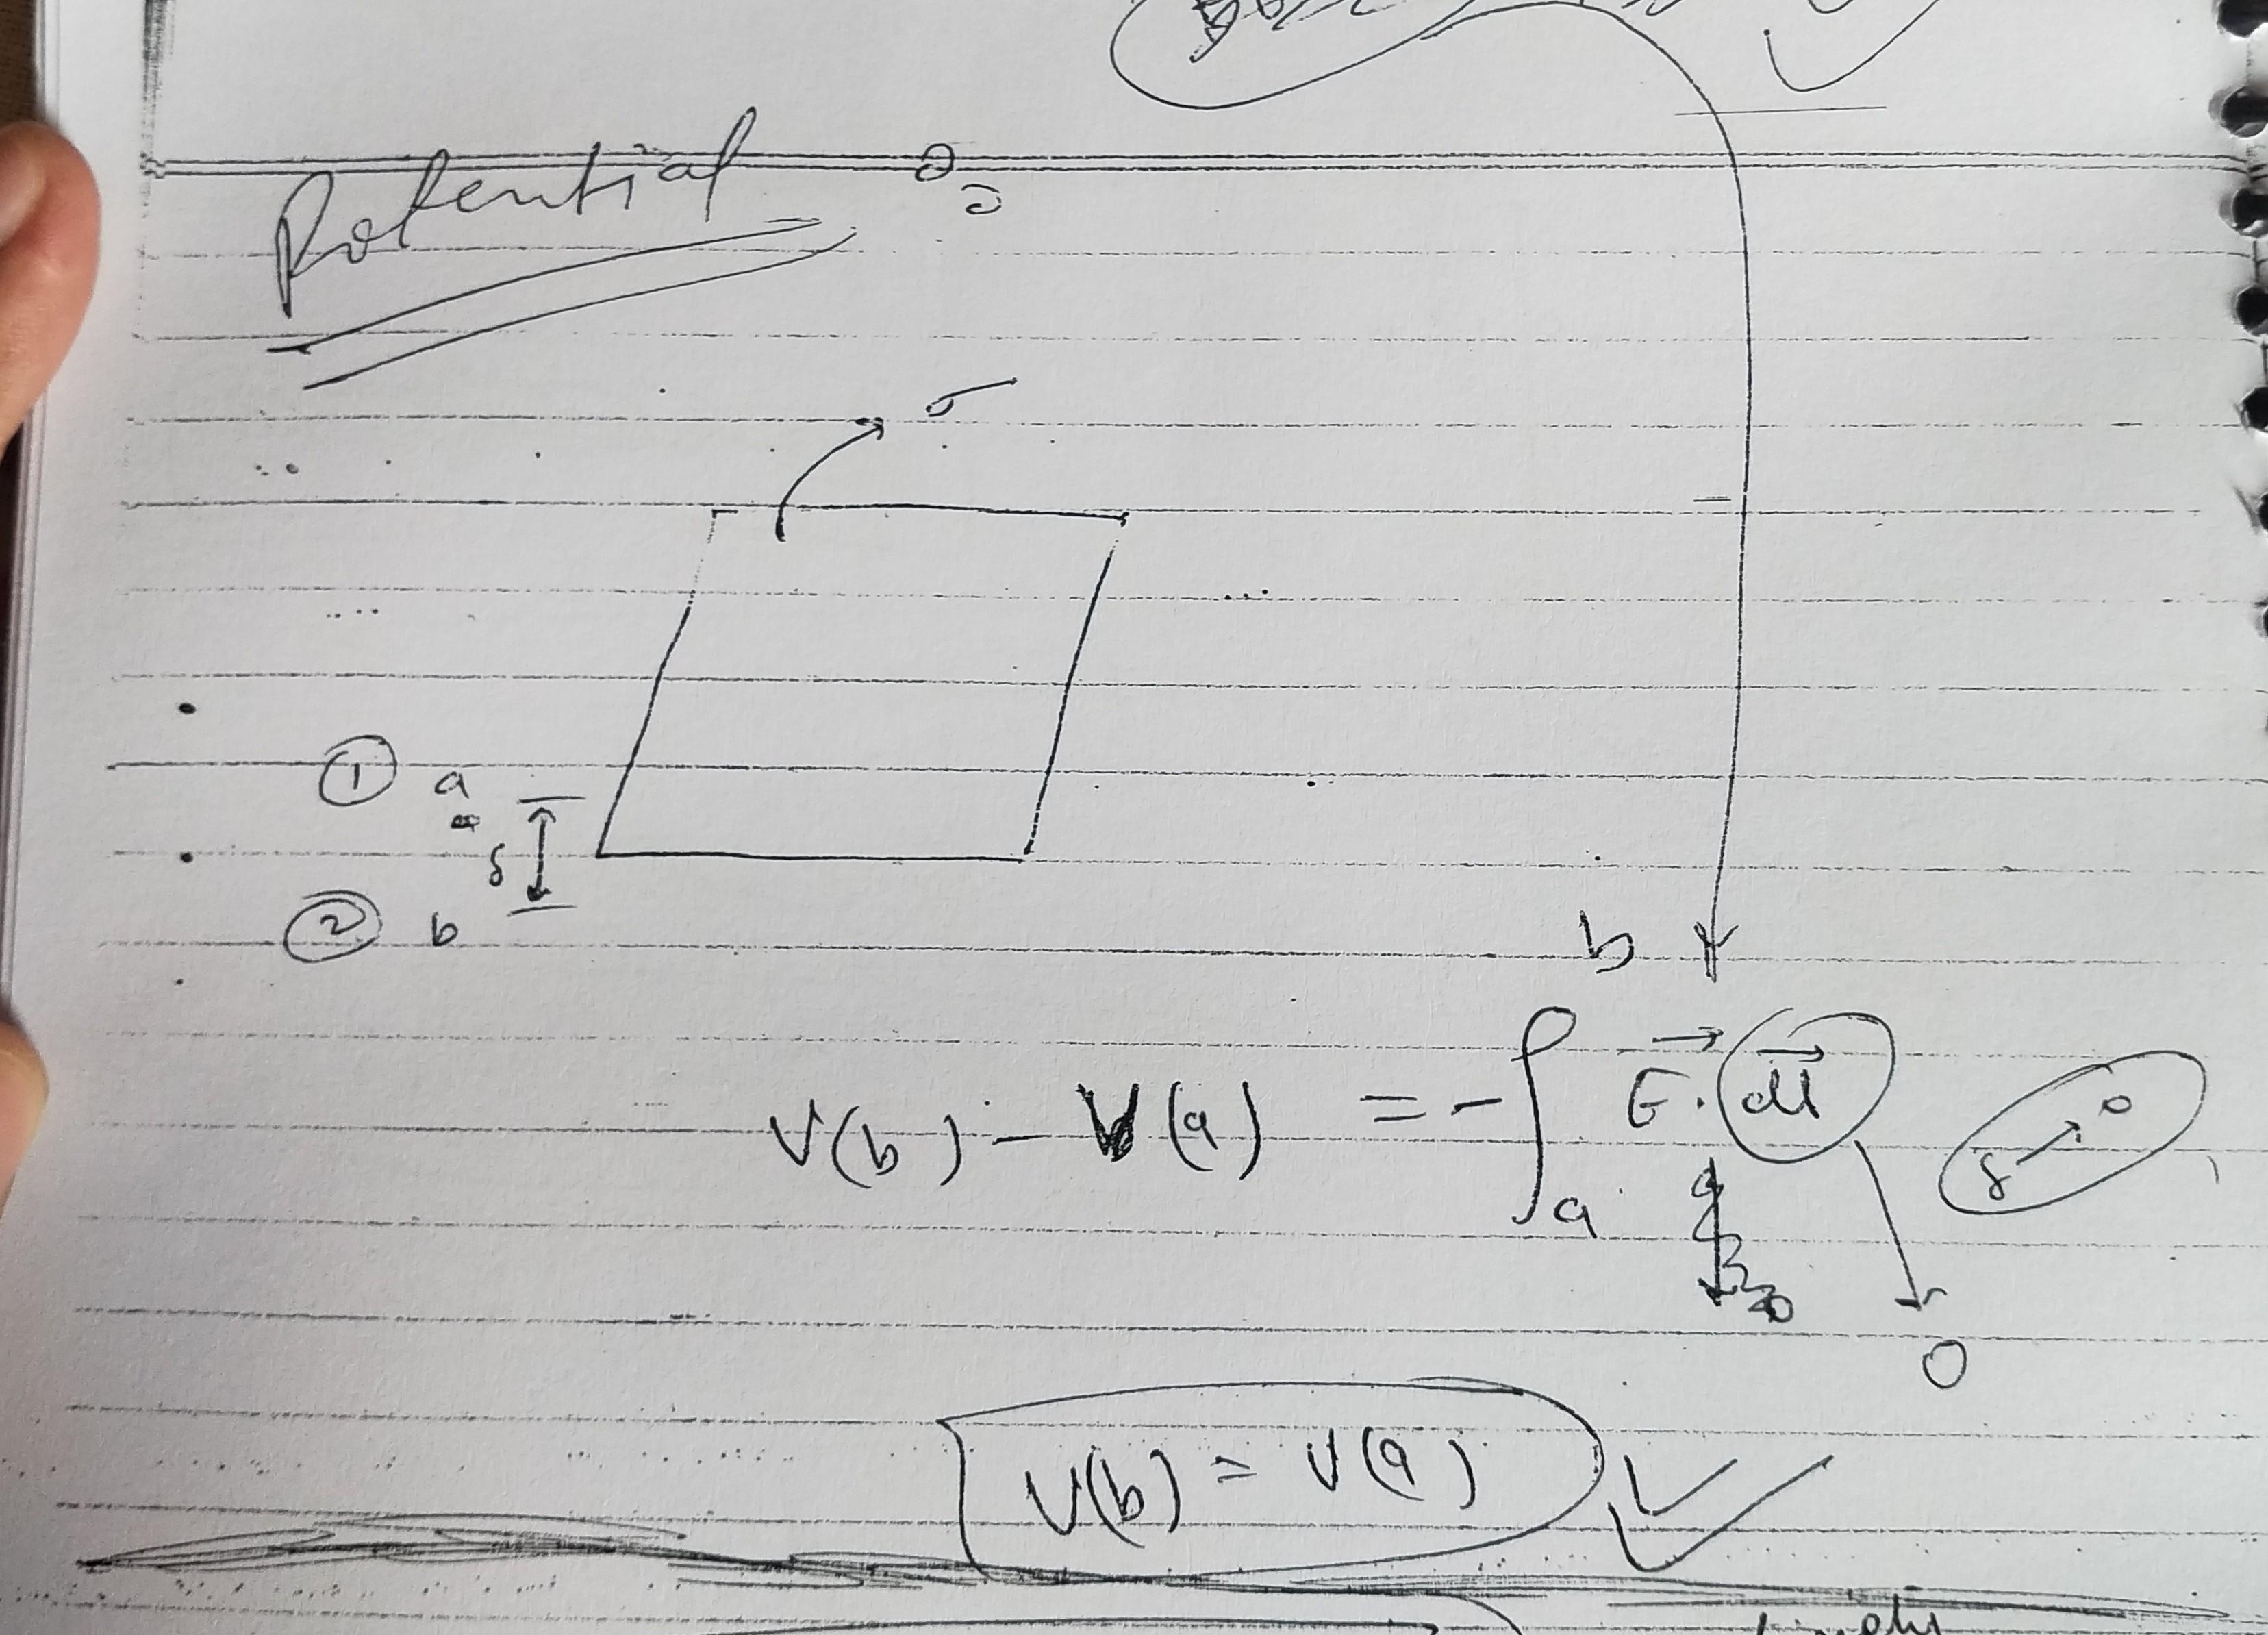 Potential :
σ
① a
δ
② b
V(b) - V(a) = - ∫ₐᵇ E⃗ . d⃗l δ → 0
0
V(b) = V(a)